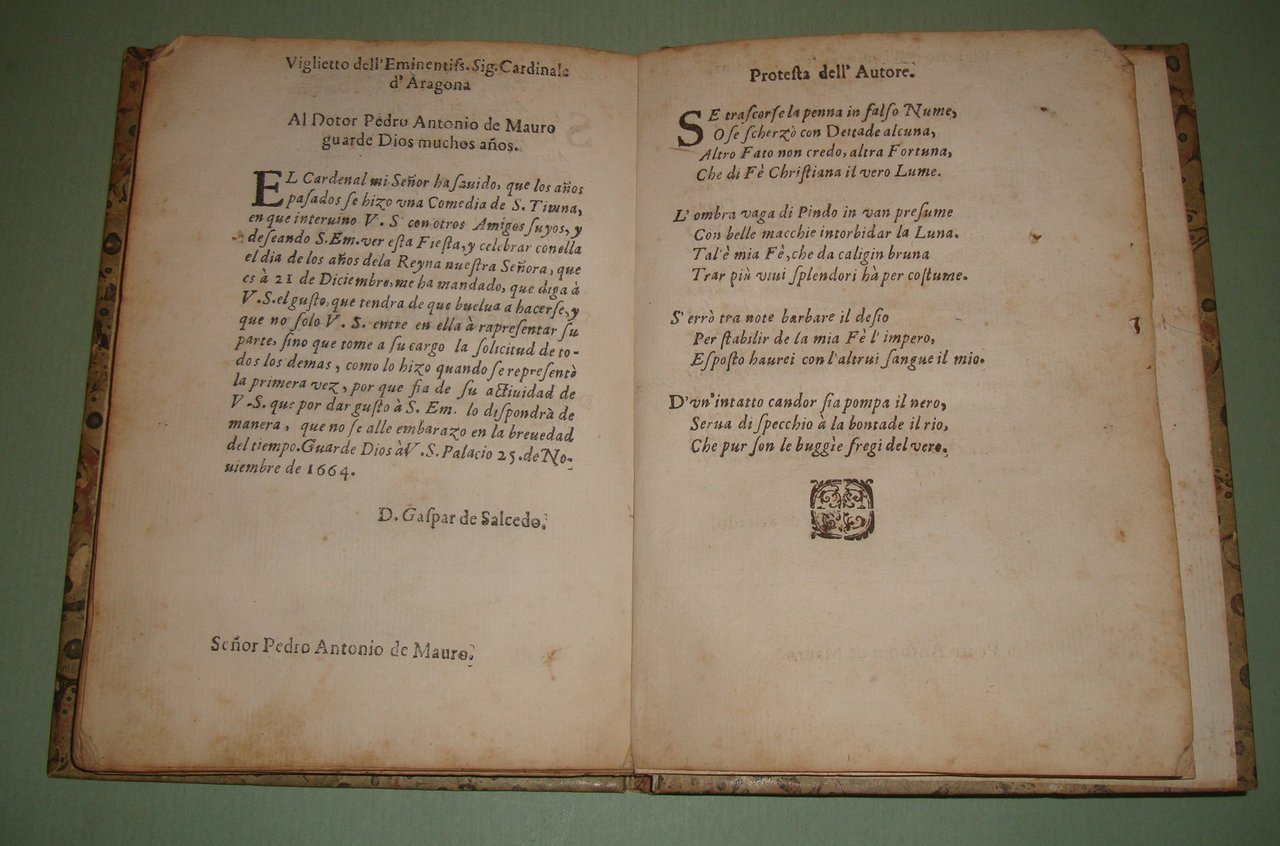 Viglietto dell'Eminentiſs. Sig. Cardinale
d'Aragona
Al Dotor Pedro Antonio de Mauro
guarde Dios muchos años.
EL Cardenal mi Señor ha ſauido, que los años
paſados ſe hizo vna Comedia de S.
en que interuino V. S con otros Amigos ſuyos, y
deſeando S. Em. ver eſta Fieſta, y celebrar con ella
el dia de los años dela Reyna nueſtra Señora, que
es à 21 de Diciembre, me ha mandado, que diga à
V. S. el guſto, que tendra de que buelua a hacerſe, y
que no ſolo V. S. entre en ella à rapreſentar ſu
parte, ſino que tome a ſu cargo la ſolicitud de to-
dos los demas, como lo hizo quando ſe repreſentò
la primera vez, por que fia de ſu actiuidad de
V. S. que por dar guſto à S. Em. lo diſpondrà de
manera, que no ſe alle embarazo en la breuedad
del tiempo. Guarde Dios à V. S. Palacio 25. de No-
uiembre de 1664.
D. Gaſpar de Salcedo.
Señor Pedro Antonio de Mauro.
Proteſta dell' Autore.
SE traſcorſe la penna in falſo Nume,
O ſe ſcherzò con Deitade alcuna,
Altro Fato non credo, altra Fortuna,
Che di Fè Chriſtiana il vero Lume.
L' ombra vaga di Pindo in van preſume
Con belle macchie intorbidar la Luna.
Tal'è mia Fè, che da caligin bruna
Trar più viui ſplendori hà per coſtume.
S' errò tra note barbare il deſio
Per ſtabilir de la mia Fè l' impero,
Eſpoſto haurei con l'altrui ſangue il mio.
D'vn'intatto candor ſia pompa il nero,
Serua di ſpecchio à la bontade il rio,
Che pur ſon le buggìe fregi del vero.